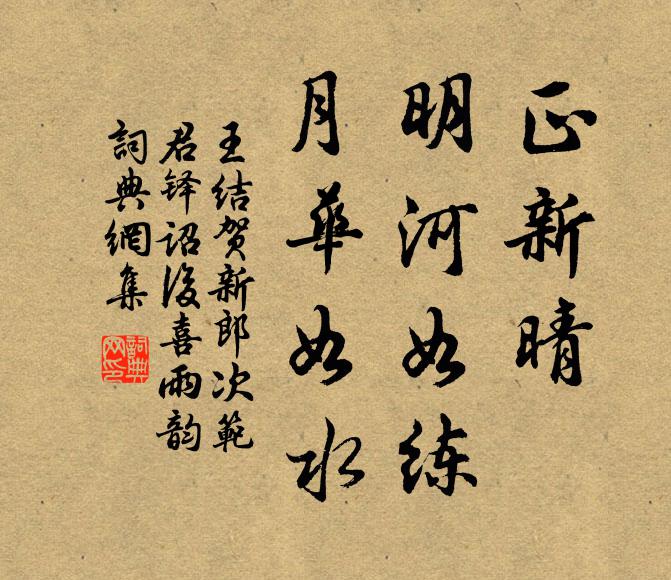 正新晴
明河如练
月華如水
王结贺新郎次範
君铎诏後喜雨韵
詞典網集
詞典
网印